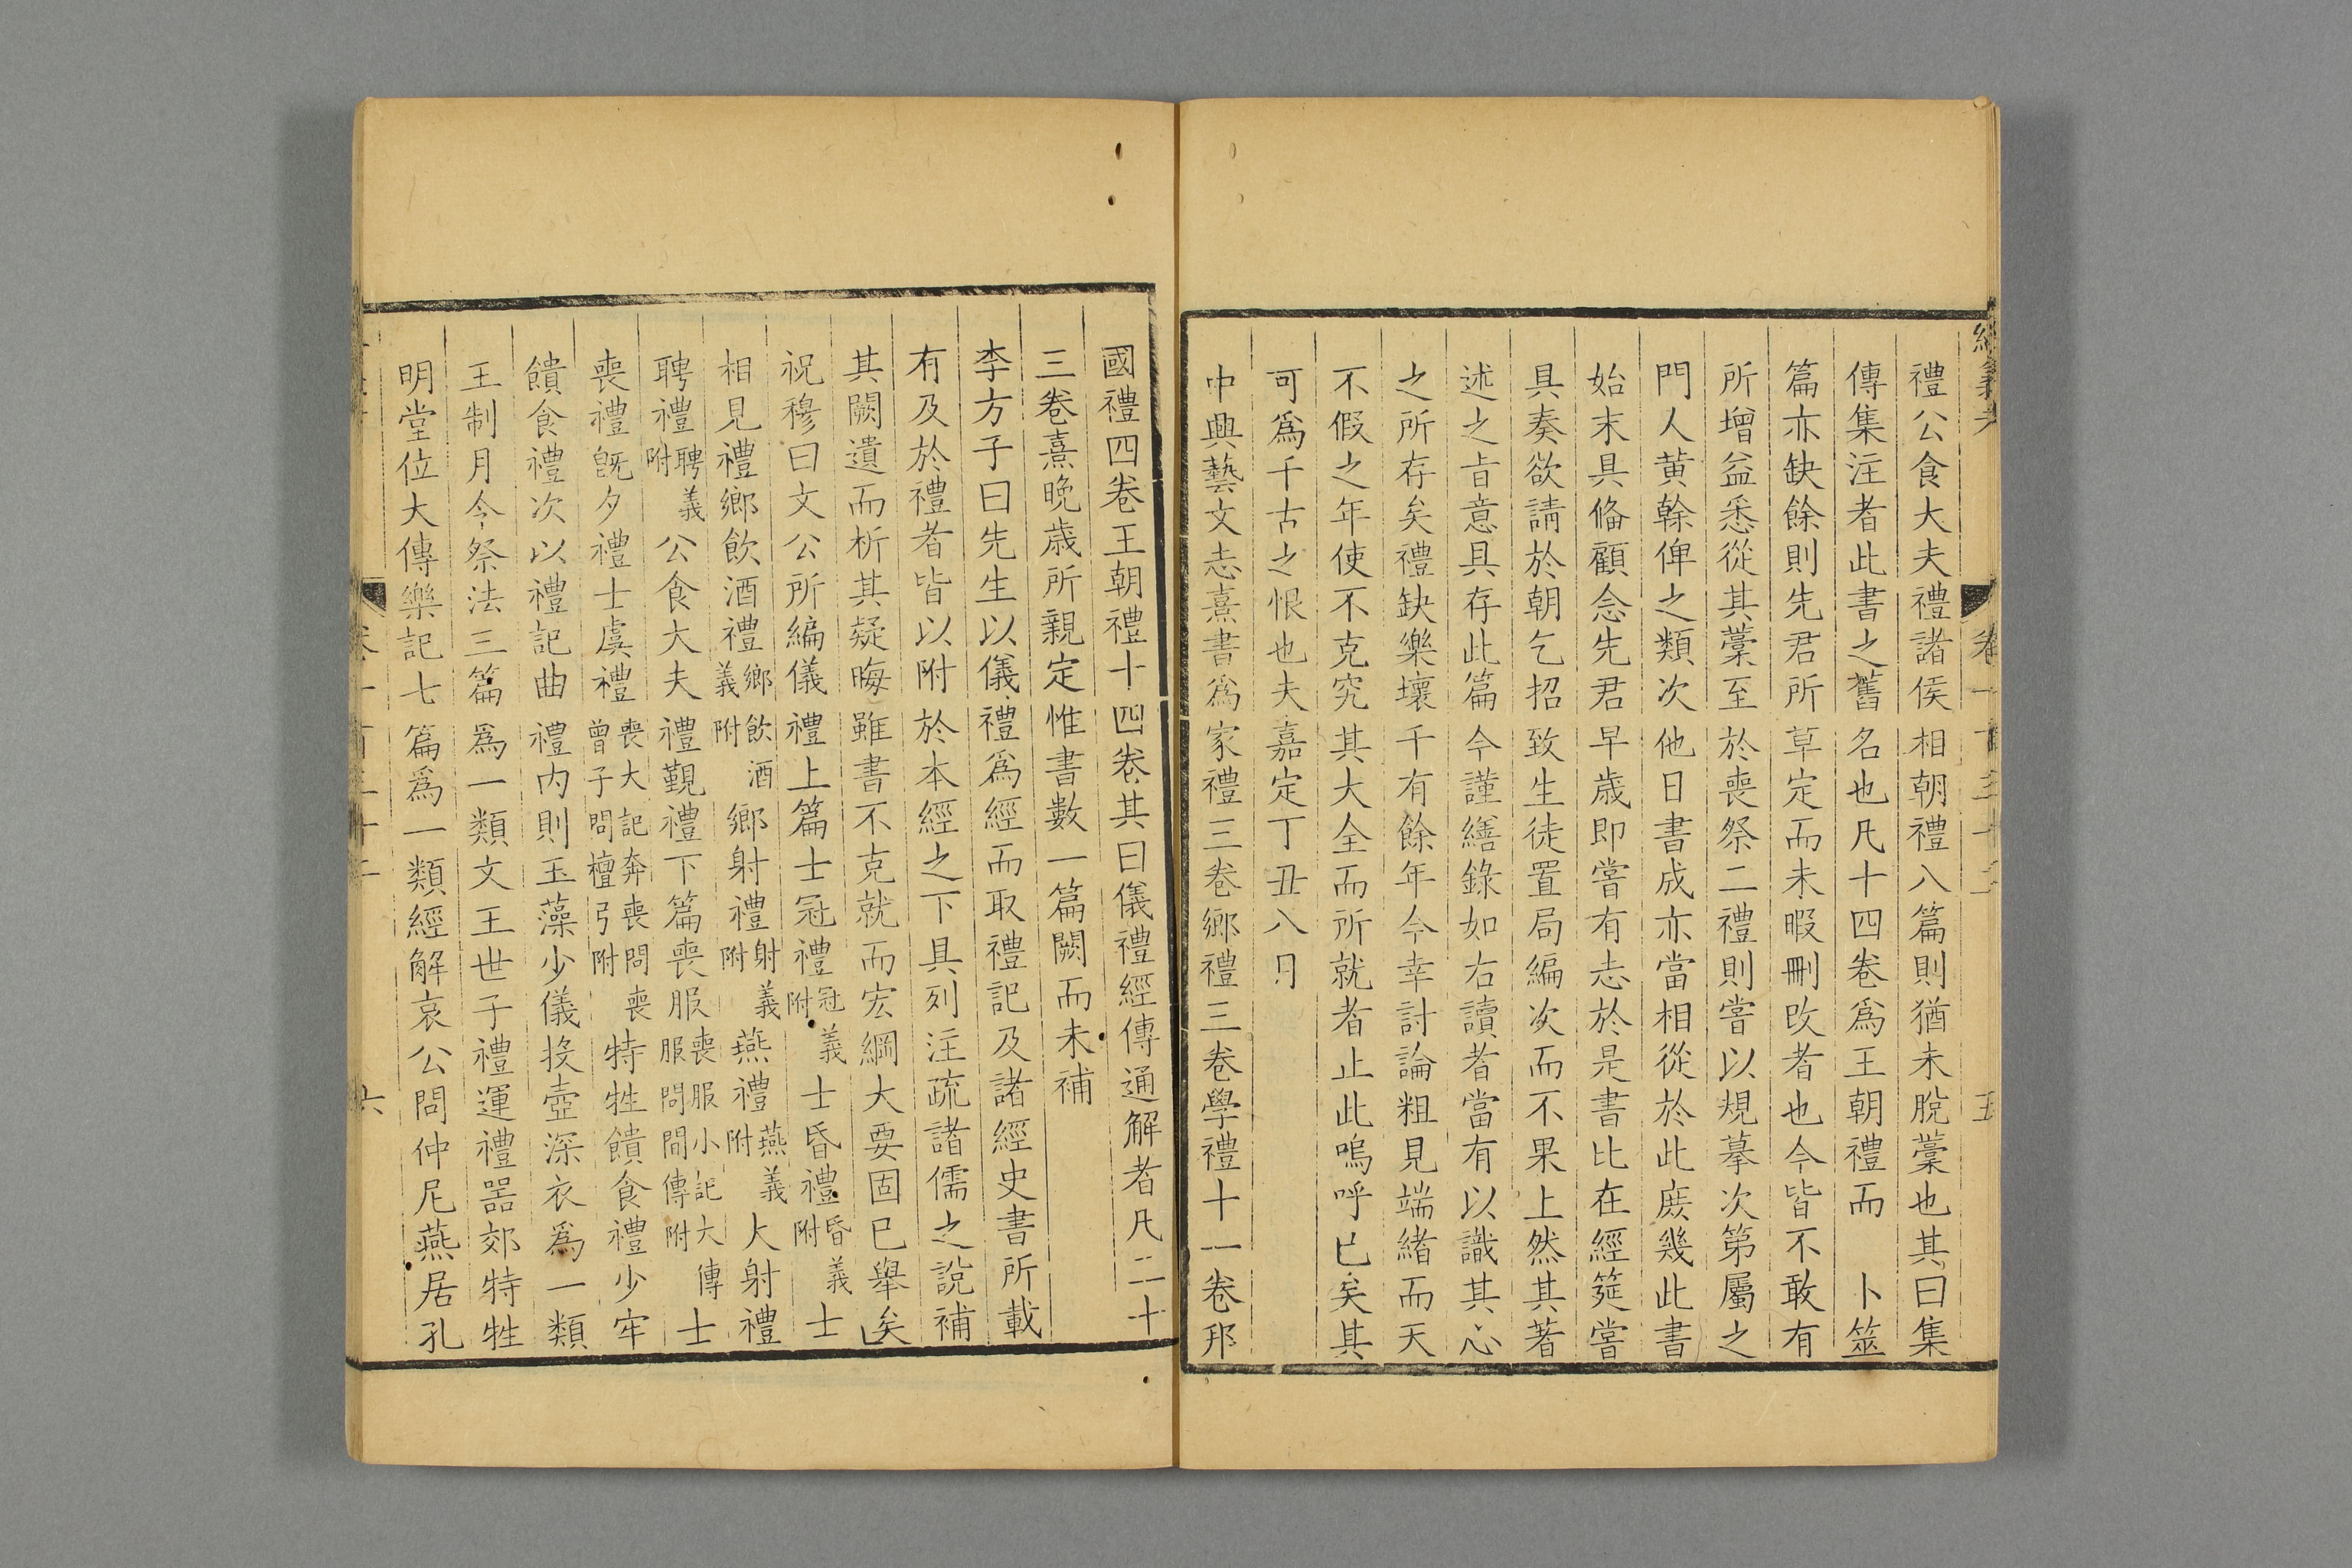 禮公食大夫禮諸侯相朝禮八篇則猶未脫藁也其曰集
傳集注者此書之舊名也凡十四卷爲王朝禮而　卜筮
篇亦缺餘則先君所草定而未暇刪改者也今皆不敢有
所增益悉從其藁至於喪祭二禮則嘗以規摹次第屬之
門人黄榦俾之類次他日書成亦當相從於此庶幾此書
始末具偹顧念先君早歳即嘗有志於是書比在經筵嘗
具奏欲請於朝乞招致生徒置局編次而不果上然其著
述之㫖意具存此篇今謹繕錄如右讀者當有以識其心
之所存矣禮缺樂壞千有餘年今幸討論粗見端緒而天
不假之年使不克究其大全而所就者止此嗚呼已矣其
可爲千古之恨也夫嘉定丁丑八月
中興藝文志熹書爲家禮三卷鄉禮三卷學禮十一卷邦
國禮四卷王朝禮十四卷其曰儀禮經傳通解者凡二十
三卷熹晚歳所親定惟書數一篇闕而未補
李方子曰先生以儀禮爲經而取禮記及諸經史書所載
有及於禮者皆以附於本經之下具列注疏諸儒之說補
其闕遺而析其疑晦雖書不克就而宏綱大要固已舉矣
祝穆曰文公所編儀禮上篇士冠禮冠義附士昏禮昏義附士
相見禮鄉飲酒禮鄉飲酒義附鄉射禮射義附燕禮燕義附大射禮
聘禮聘義附公食大夫禮覲禮下篇喪服喪服小記大傳服問間傳附士
喪禮既夕禮士虞禮喪大記奔喪問喪曾子問檀弓附特牲饋食禮少牢
饋食禮次以禮記曲禮内則玉藻少儀投壺深衣爲一類
王制月令祭法三篇爲一類文王世子禮運禮器郊特牲
明堂位大傳樂記七篇爲一類經解哀公問仲尼燕居孔
六